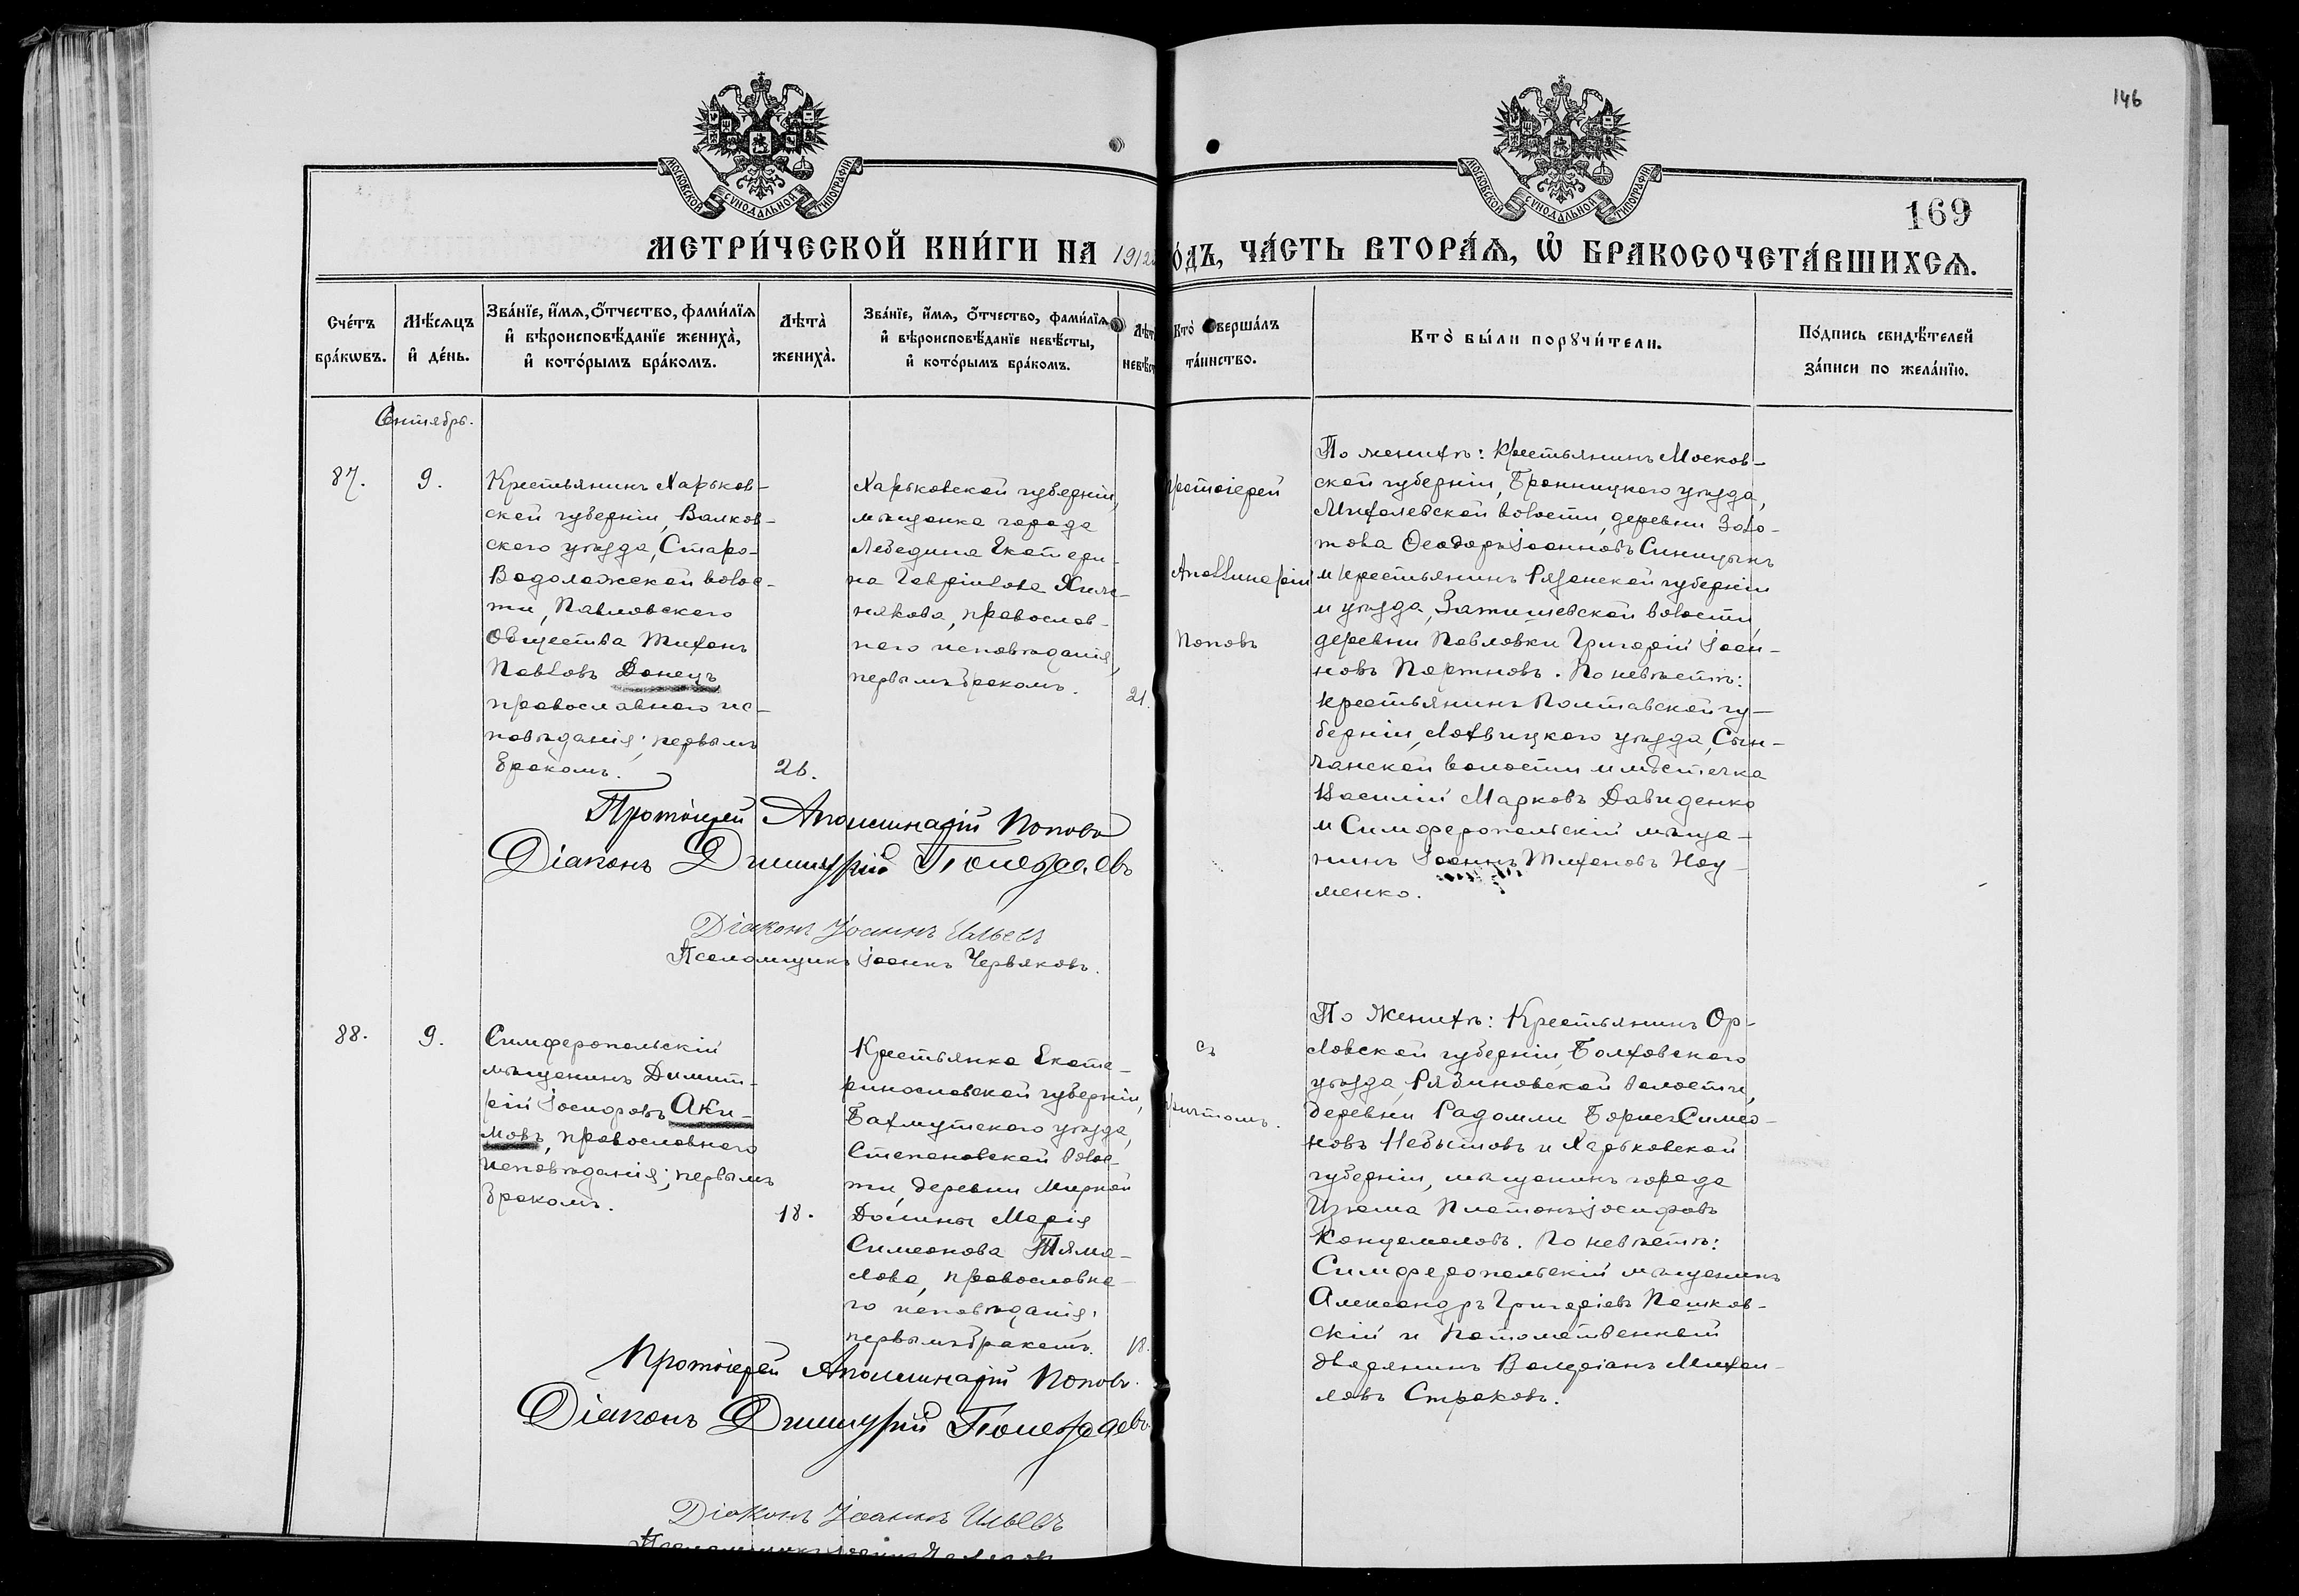 146
169
МОСКОВСКОЙ СѴНОДАЛЬНОЙ ТИПОГРАФІИ
МОСКОВСКОЙ СѴНОДАЛЬНОЙ ТИПОГРАФІИ
МЕТРИ́ЧЕСКОЙ КНИ́ГИ НА 1912
О́ДЪ, ЧА́СТЬ ВТОРА́Ѧ, Ѽ БРАКОСОЧЕТА́ВШИХСѦ.
Сче́тъ
бра́кѡвъ.
Мѣ́сѧцъ
и҆ де́нь.
Зва́нїе, и҆́мѧ, ѻ҆́тчество, фами́лїѧ
и҆ вѣроисповѣ́данїе жениха̀,
и҆ кото́рымъ бра́комъ.
Лѣта̀
жениха̀.
Зва́нїе, и҆́мѧ, ѻ҆́тчество, фами́лїѧ
и҆ вѣроисповѣ́данїе невѣ́сты,
и҆ кото́рымъ бра́комъ.
Лѣт
невѣ́ст
Кто̀ вершалъ
та́инство.
Кто̀ бы́ли порꙋчи́тели.
По́дпись свидѣ́телей
за́писи по жела́нїю.
Сентябрь.
87.
9.
Крестьянинъ Харьков-
ской губерніи, Валков-
ского уѣзда, Старо-
Водолажской волос-
ти, Павловского
Общества Тихонъ
Павловъ Донецъ
православного ис-
повѣданія; первымъ
бракомъ.
26.
Харьковской губерніи,
мѣщанка города
Лебедина Екатери-
на Гавріилова Хиж-
някова, православ-
ного исповѣданія,
первымъ бракомъ.
21.
ротоіерей
Аполлинарій
Поповъ
По женихѣ: крестьянинъ Москов-
ской губерніи, Бронницкого уѣзда,
Михалевской волости, деревни Золо-
това Ѳеодоръ Іоанновъ Синицынъ
и крестьянинъ Рязанской губерніи
и уѣзда, Затишевской волости
деревни Павловки Григорій Іоан-
новъ Портновъ. По невѣстѣ:
крестьянинъ Полтавской гу-
берніи, Лохвицкого уѣзда, Сен-
чанской волости и мѣстечка
Василій Марковъ Давиденко
и Симферопольскій мѣща-
нинъ Іоаннъ Тихоновъ Нау-
менко.
Протоіерей Аполлинарій Поповъ
Діаконъ Димитрій
Діаконъ Іоаннъ Ильевъ
Псаломщикъ Іоаннъ Червяковъ.
88.
9.
Симферопольскій
мѣщанинъ Димит-
рій Іосифовъ Аки-
мовъ, православного
исповѣданія; первымъ
бракомъ.
18.
Крестьянка Екате-
ринославской губерніи,
Бахмутского уѣзда,
Степановской волос-
ти, деревни Мирной
Долины Марія
Симеонова Тяма-
лова, православно-
го исповѣданія,
первымъ бракомъ.
18.
съ
ричтомъ.
По женихѣ: Крестьянинъ Ор-
ловской губерніи Болховского
уѣзда, Рябиновской волости,
деревни Радомли Борисъ Симео-
новъ Небытовъ и Харьковской
губерніи, мѣщанинъ города
Изюма Платонъ Іосифовъ
. По невѣстѣ:
Симферопольскій мѣщанинъ
Александръ Григоріевъ Пашков-
скій и потомственный
дворянинъ Валеріанъ Михаи-
ловъ Страховъ.
Протоіерей Аполлинарій Поповъ.
Діаконъ Димитрій
Діаконъ Іоаннъ Ильевъ